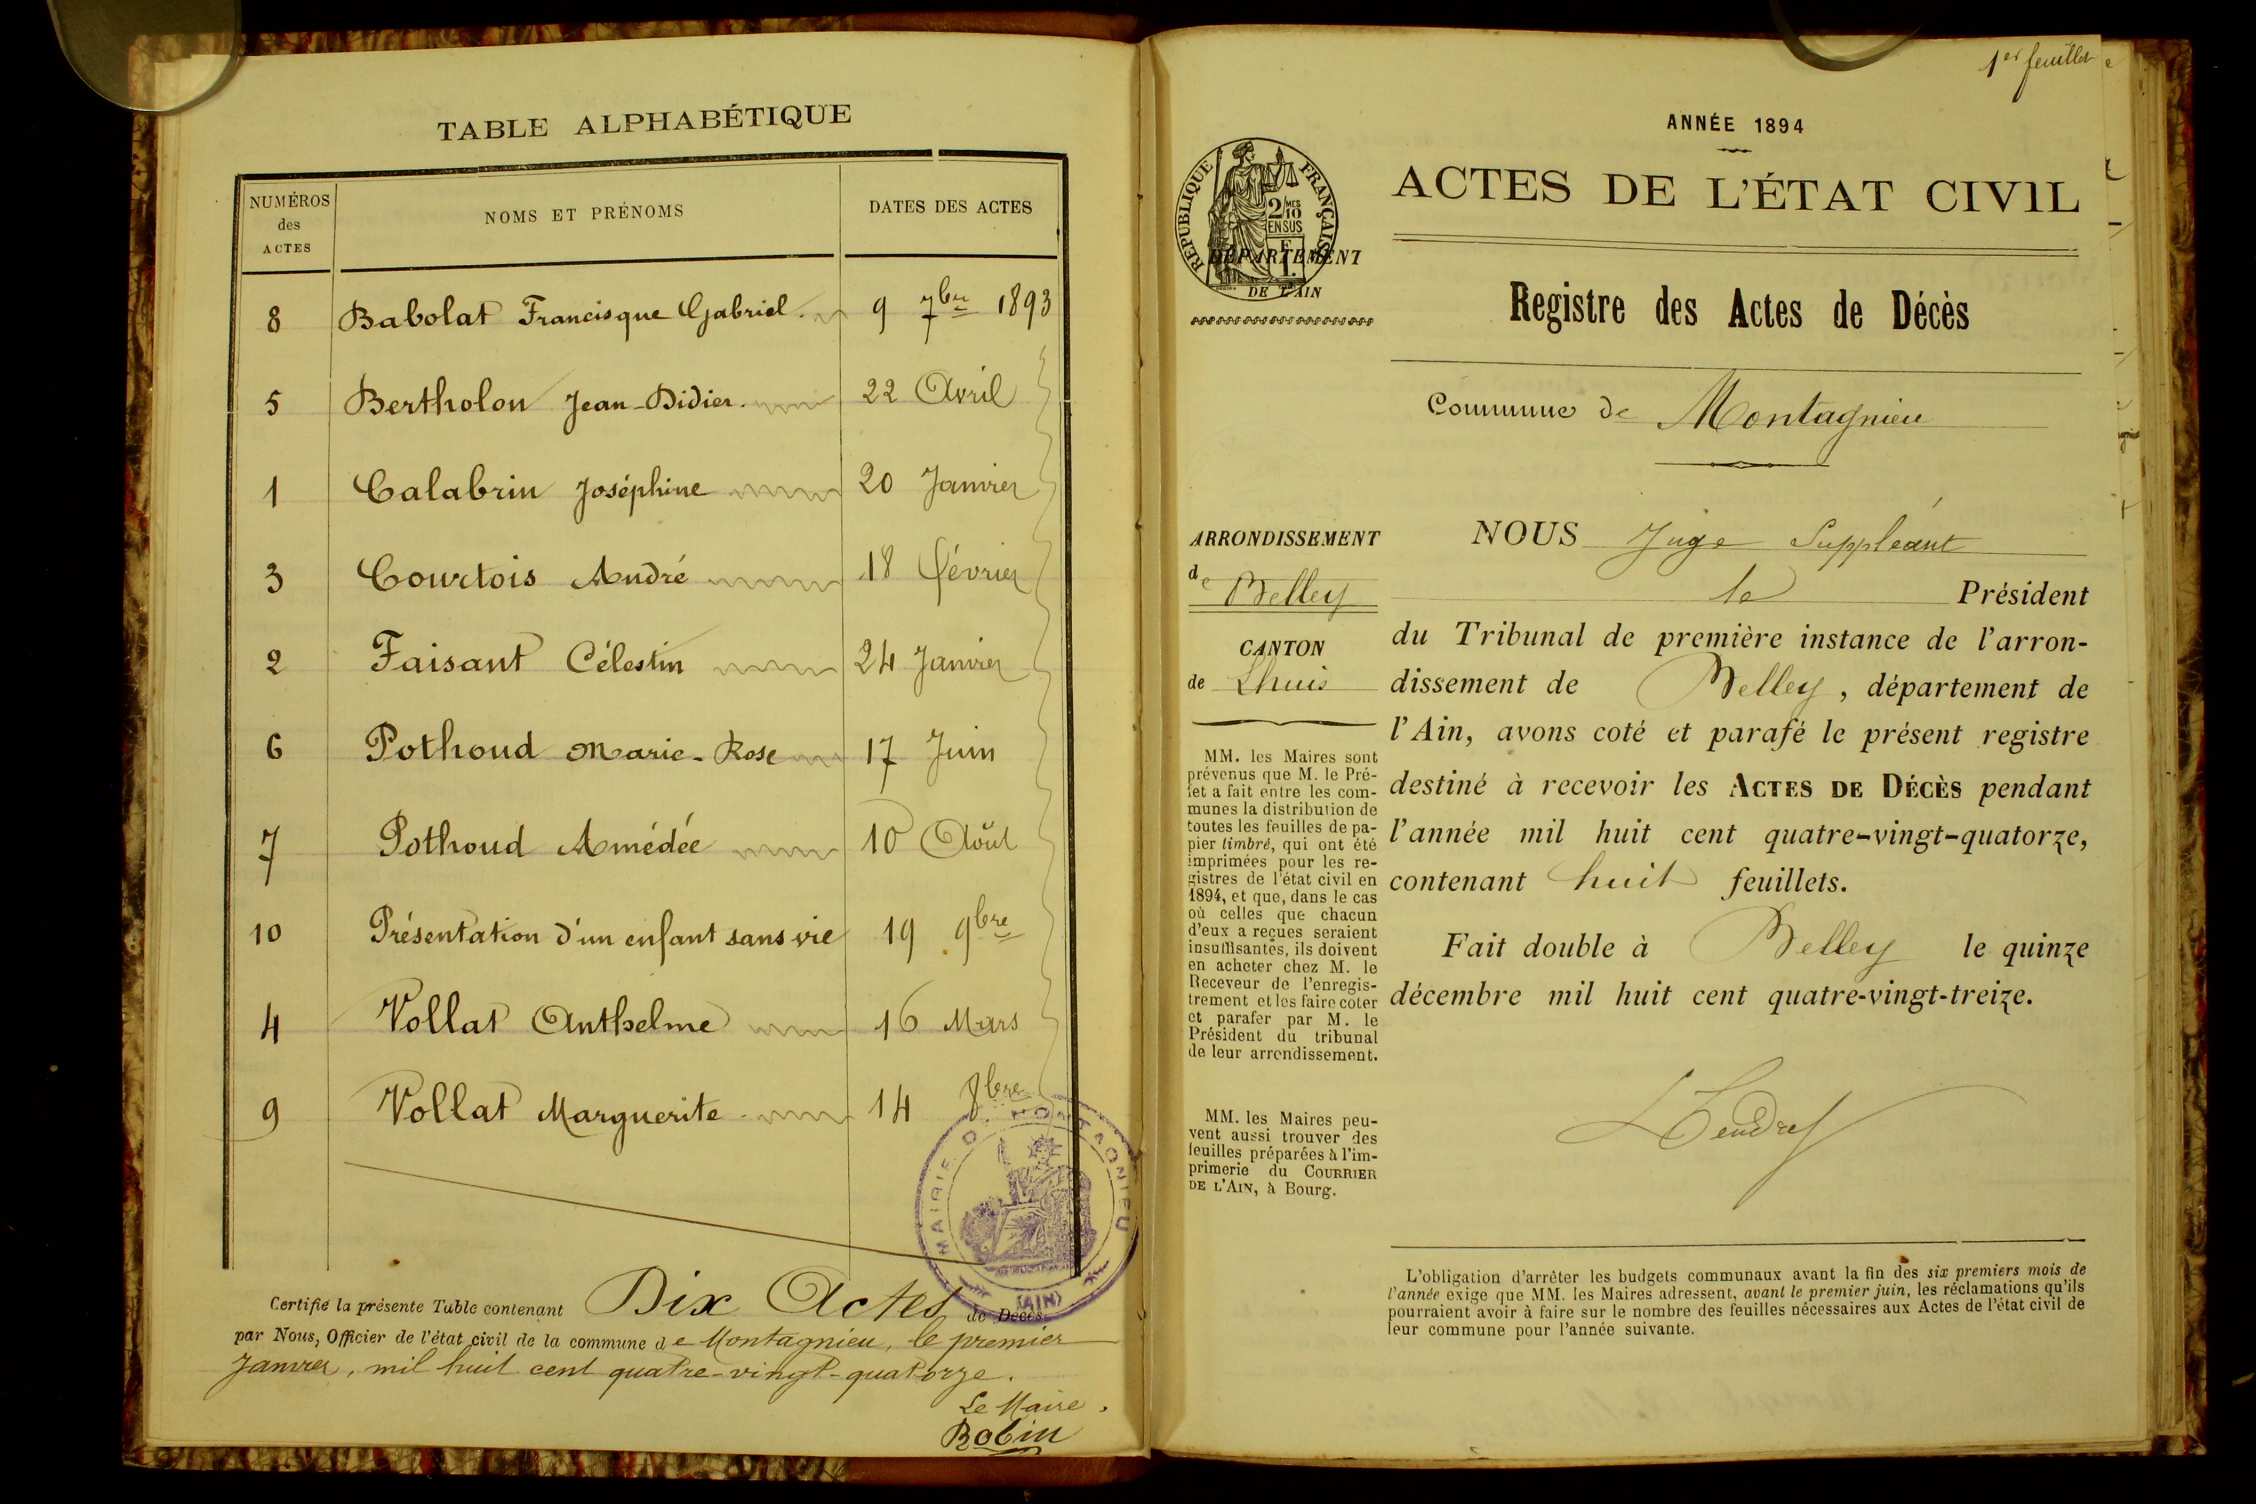 TABLE ALPHABÉTIQUE
NUMÉROS des ACTES NOMS ET PRÉNOMS DATES DES ACTES
8 Babolat Francisque Gabriel 9 7bre 1893
5 Bertholon Jean-Didier 22 Avril
1 Calabrin Joséphine 20 Janvier
3 Courtois André 18 février
2 Faisant Célestin 24 Janvier
6 Pothoud Marie-Rose 17 Juin
7 Pothoud Amédée 10 Août
10 Présentation d'un enfant sans vie 19 9bre
4 Vollat Anthelme 16 Mars
9 Vollat Marguerite 14 8bre
MAIRIE DE MONTAGNIEU
(AIN)
Certifié la présente Table contenant Dix Actes de Décès
par Nous, Officier de l'état civil de la commune de Montagnieu, le premier
Janvier, mil huit cent quatre-vingt-quatorze.
Le Maire.
Robin
1er feuillet
ANNÉE 1894
ACTES DE L'ÉTAT CIVIL
RÉPUBLIQUE FRANÇAISE
2/10 MES
EN SUS
DÉPARTEMENT
DE L'AIN
Registre des Actes de Décès
Commune de Montagnieu
ARRONDISSEMENT
de Belley
CANTON
de Lhuis
MM. les Maires sont
prévenus que M. le Pré-
fet a fait entre les com-
munes la distribution de
toutes les feuilles de pa-
pier timbré, qui ont été
imprimées pour les re-
gistres de l'état civil en
1894, et que, dans le cas
où celles que chacun
d'eux a reçues seraient
insuffisantes, ils doivent
en acheter chez M. le
Receveur de l'enregis-
trement et les faire coter
et parafer par M. le
Président du tribunal
de leur arrondissement.
MM. les Maires peu-
vent aussi trouver des
feuilles préparées à l'im-
primerie du COURRIER
DE L'AIN, à Bourg.
NOUS Juge Suppléant
le Président
du Tribunal de première instance de l'arron-
dissement de Belley, département de
l'Ain, avons coté et parafé le présent registre
destiné à recevoir les ACTES DE DÉCÈS pendant
l'année mil huit cent quatre-vingt-quatorze,
contenant huit feuillets.
Fait double à Belley le quinze
décembre mil huit cent quatre-vingt-treize.
L'obligation d'arrêter les budgets communaux avant la fin des six premiers mois de
l'année exige que MM. les Maires adressent, avant le premier juin, les réclamations qu'ils
pourraient avoir à faire sur le nombre des feuilles nécessaires aux Actes de l'état civil de
leur commune pour l'année suivante.